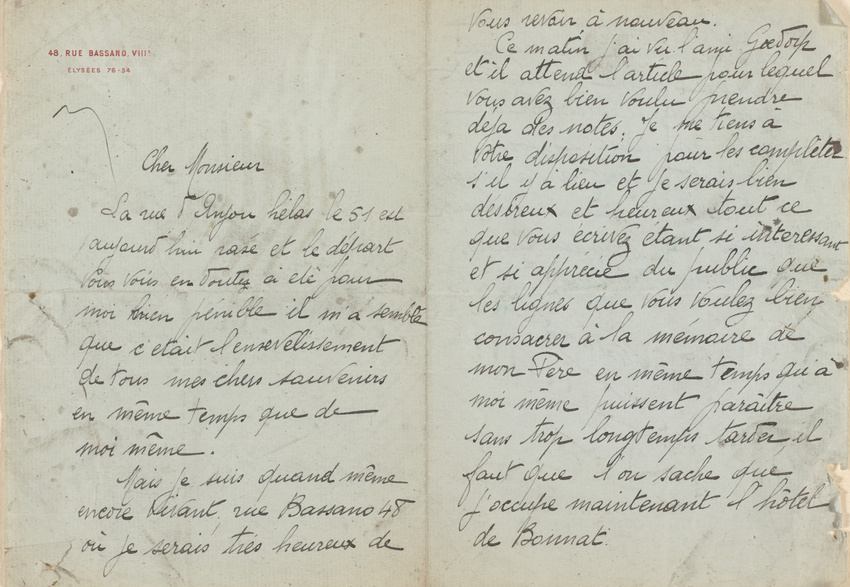 48, RUE BASSANO, VIIIE
ÉLYSÉES 76-34
Cher Monsieur
La rue d'Anjou hélas le 51 est
aujourd'hui rasé et le départ
vous vous en doutez a été pour
moi bien pénible il m'a semblé
que c'était l'ensevelissement
de tous mes chers souvenirs
en même temps que de
moi même.
Mais je suis quand même
encore vivant, rue Bassano 48
où je serais très heureux de
vous revoir à nouveau.
Ce matin j'ai vu l'ami Gœdorp
et il attend l'article pour lequel
vous avez bien voulu prendre
déjà des notes. Je me tiens à
votre disposition pour les compléter
s'il y a lieu et je serais bien
désireux et heureux tout ce
que vous écrivez étant si intéressant
et si apprécié du public que
les lignes que vous voulez bien
consacrer à la mémoire de
mon Père en même temps qu'à
moi même puissent paraître
sans trop longtemps tarder, il
faut que l'on sache que
j'occupe maintenant l'hôtel
de Bonnat.